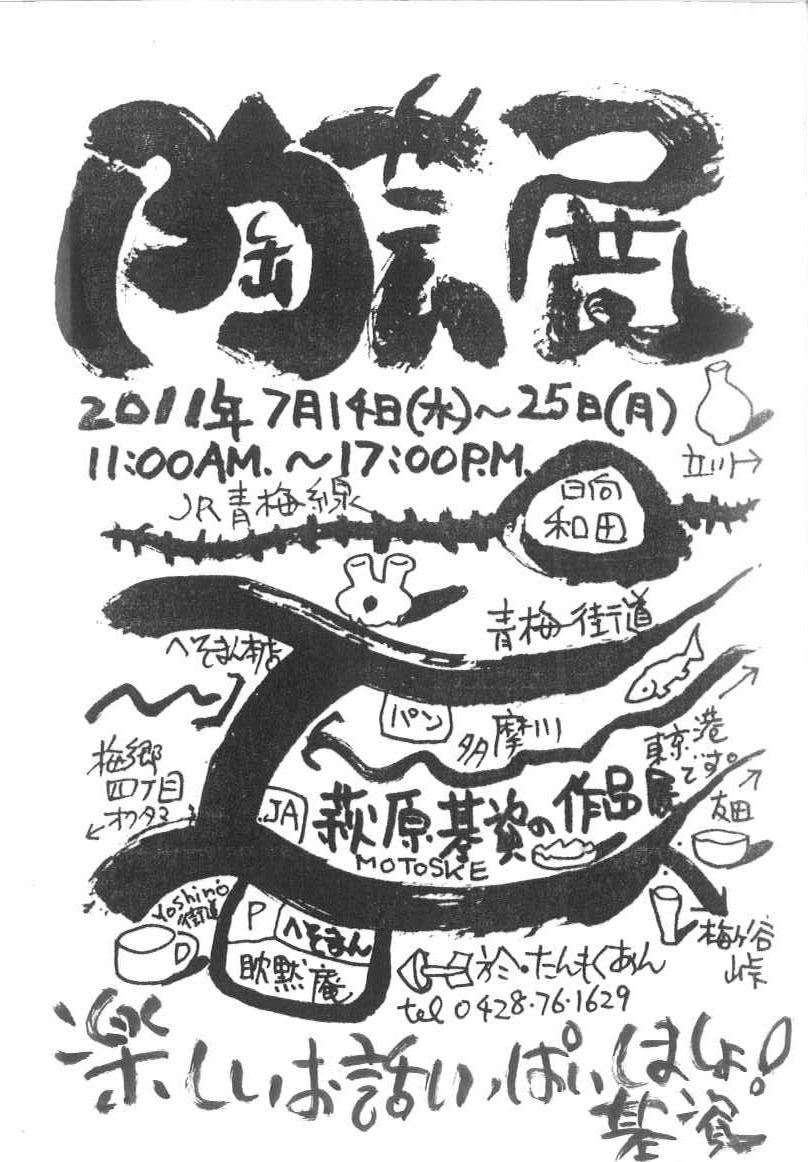 陶芸展
2011年 7月14日(水)~25日(月)
11:00AM.~17:00P.M.
立川→
JR青梅線
日向
和田
青梅街道
へそまん本店
パン
多摩川
東京港
です。
梅郷
四丁目
オクタマ
JA
萩原基資の作品展
MOTOSKE
友田
Yoshino
街道
P
へそまん
耽黙庵
於・たんもくあん
tel 0428・76・1629
梅ヶ谷
峠
楽しいお話いっぱいしましょ!
基資